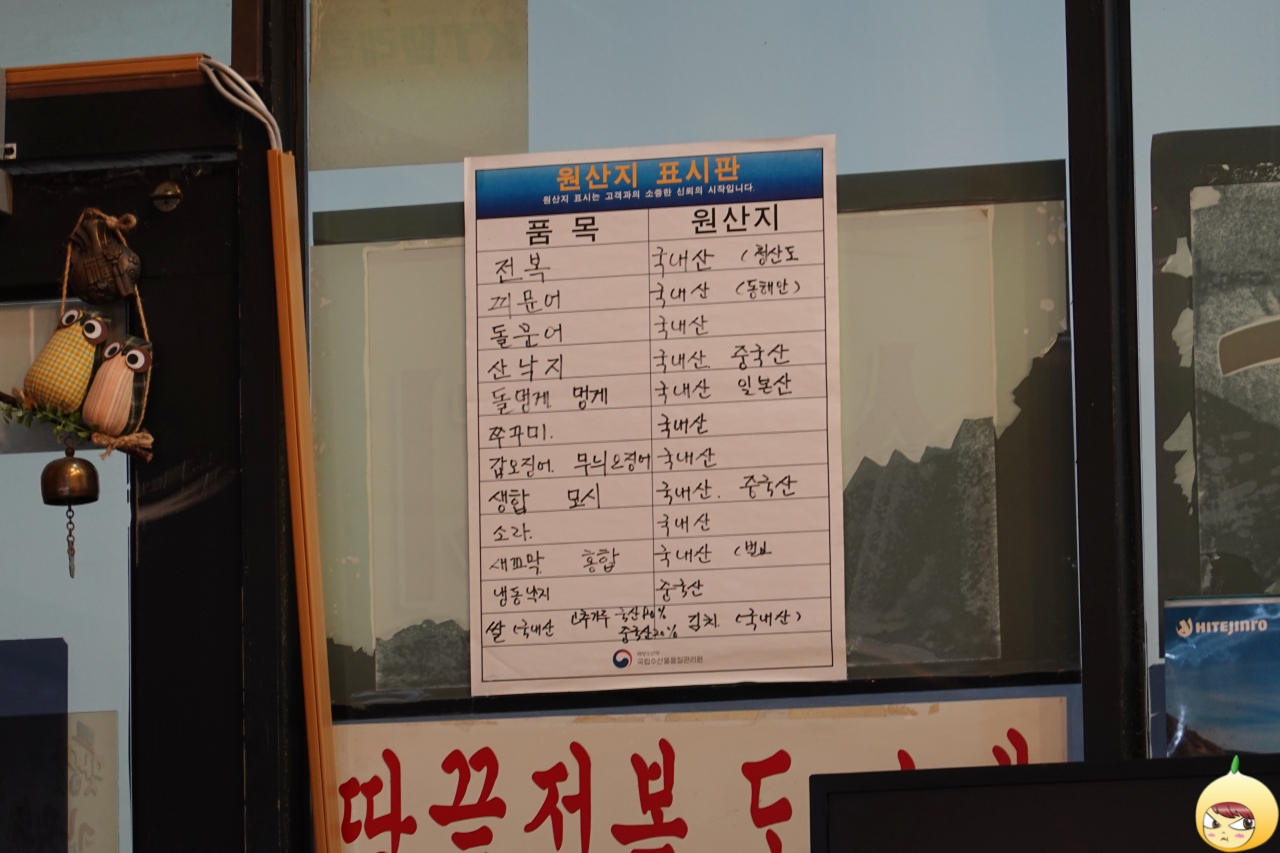 원산지 표시판
원산지 표시는 고객과의 소중한 신뢰의 시작입니다.
품 목 원산지
전복 국내산 (청산도
피문어 국내산 (동해안)
돌문어 국내산
산낙지 국내산 중국산
돌멍게 멍게 국내산 일본산
쭈꾸미. 국내산
갑오징어. 무늬오징어 국내산
생합 모시 국내산. 중국산
소라. 국내산
새꼬막 홍합 국내산 (벌교
냉동낙지 중국산
쌀 (국내산 고추가루 국산 중국산 김치 (국내산)
해양수산부
국립수산물품질관리원
HITEJINRO
따끈전복 도